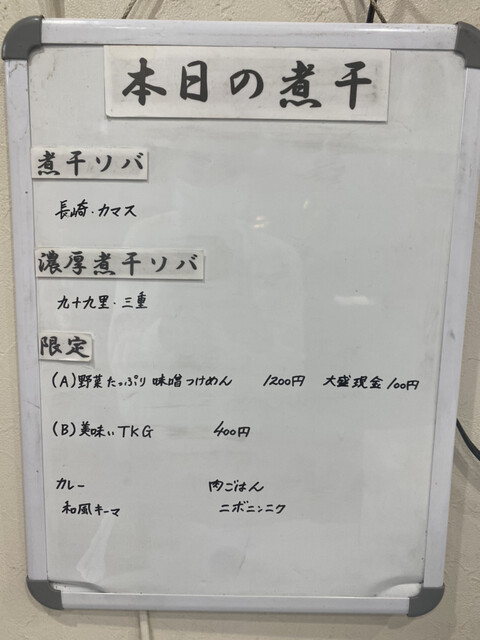 本日の煮干
煮干ソバ
長崎・カマス
濃厚煮干ソバ
九十九里・三重
限定
(A)野菜たっぷり味噌つけめん 1200円 大盛現金100円
(B)美味いTKG 400円
カレー 肉ごはん
和風キーマ ニボニンニク